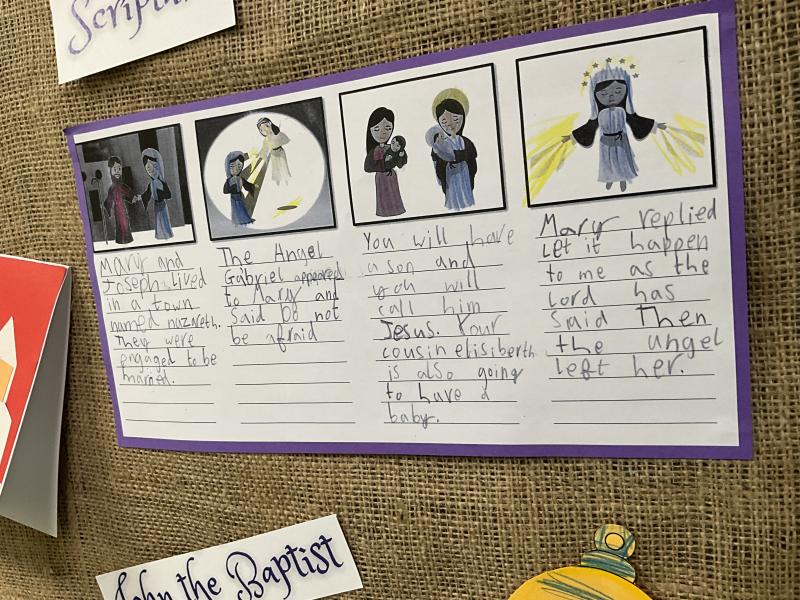 Scriptu
Mary and
Joseph lived
in a town
named nazareth.
They were
engaged to be
married.
The Angel
Gabriel appeared
to Mary and
said Do not
be afraid
You will have
a son and
you will
call him
Jesus. Your
cousin elisiberth
is also going
to have a
baby.
Mary replied
Let it happen
to me as the
lord has
said Then
the angel
left her.
John the Baptist